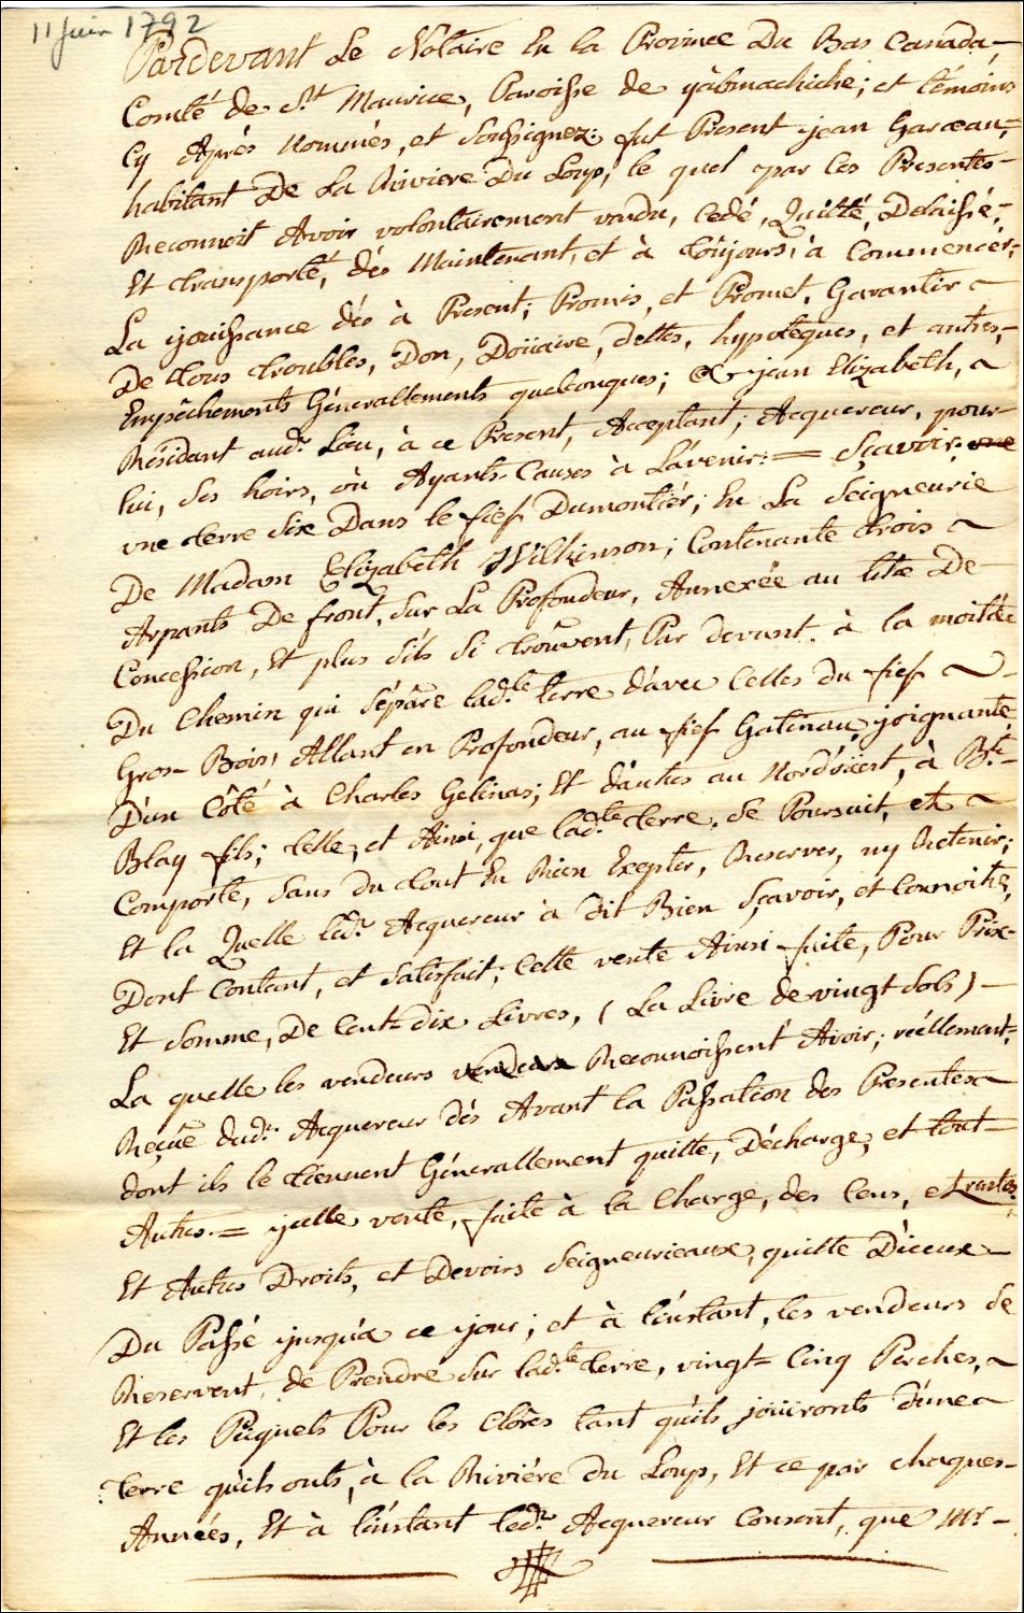 11 Juin 1792
Pardevant Le Notaire En la Province Du Bas Canada,
Comté de St. Maurice, Paroisse de yabmachiche; et témoins
Cy Après Nommés, et Soussignez: fut Present jean Garceau,
habitant De La Riviere Du Loup, le quel par les Presentes
Reconnoit Avoir volontairement vendu, Cedé, Quitté, Delaissé,
Et transporté, dés Maintenant, et à toûjours, à Commencer,
La jouissance dés à Present; Promis, et Promet, Garantir
De tous troubles, Don, Doüaire, dettes, hypoteques, et autres,
Empêchements Générallements quelconques; à jean Elizabeth,
Résidant audt. Lieu, à ce Present, Acceptant; Acquereur, pour
lui, Ses hoirs, où Ayants Causes à L'avenir: = Sçavoir, une
une terre Size Dans le fief Dumontiér; En La Seigneurie
De Madam Elizabeth Wilkinson; Contenante trois
Arpants De front, Sur La Profondeur, Annexée au titre De
Concession, Et plus S'ils Si trouvent, Par devant à la moitée
Du Chemin qui Sépâre ladte. terre d'avec Celles du fief
Gros-Bois, Allant en Profondeur, au fief Gatinau, joignante
D'un Côté à Charles Gelinas; Et d'autres au Nordoüest, à Bte.
Blay fils; telle, et Ainsi, que ladte. terre, Se Poursuit, et
Comporte, Sans du tout En Rien Exepter, Reserver, ny Retenir;
Et la Quelle ledt. Acquereur à dit Bien Sçavoir, et Connoitre,
Dont Contant, et Satisfait; Cette vente Ainsi faite, Pour Prix
Et Somme, De Cent-dix Livres, (La Livre de vingt Sols)
La quelle les vendeurs vendeurs Reconnoissent Avoir; réellement
Reçûe dudt. Acquereur dés Avant la Passation des Presentes
dont ils le tiennent Générallement quitte, Décharge, et tout
Autres. = ycelle vente, faite à la Charge, des Cens, et rentes,
Et Autres Droits, et Devoirs Seigneurieaux, quitte D'iceux
Du Passé jusqu'à ce jour; et à l'instant, les vendeurs Se
Reservent, de Prendre Sur ladte. terre, vingt-Cinq Perches,
Et les Piquets Pour les Clôres tant qu'ils joüironts d'une
terre qu'ils onts, à la Riviére du Loup, Et ce par chaques
Années, Et à l'instant ledt. Acquereur Consent, que Mr